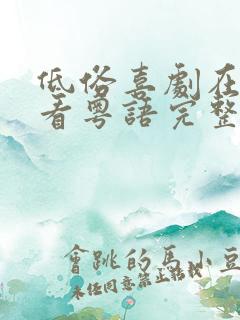 低俗喜劇在
看粵語完整
會跳的馬小豆
未经同意禁止转载